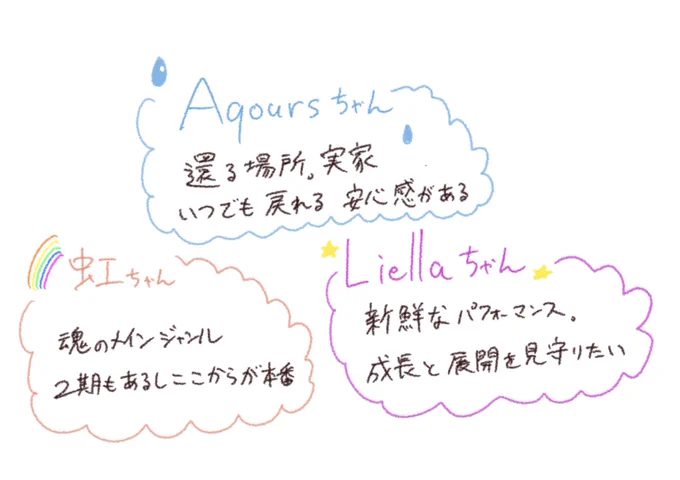 Aqoursちゃん
還る場所。実家
いつでも戻れる 安心感がある
虹ちゃん
魂のメインジャンル
2期もあるしここからが本番
Liellaちゃん
新鮮なパフォーマンス。
成長と展開を見守りたい